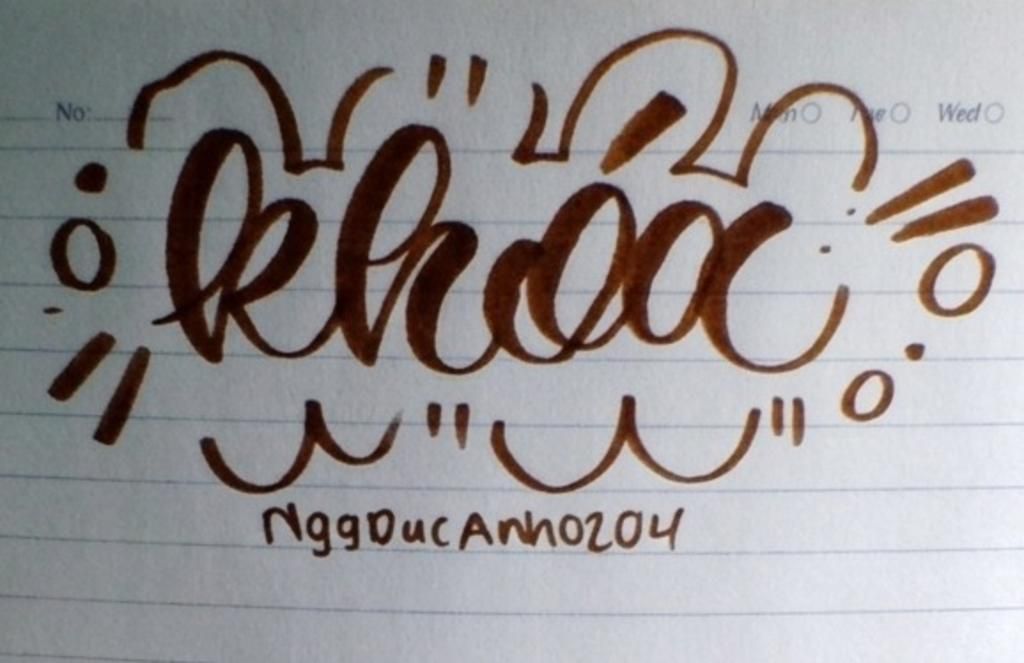 No: Mon Tue Wed
khóa
NggDucAnh0204